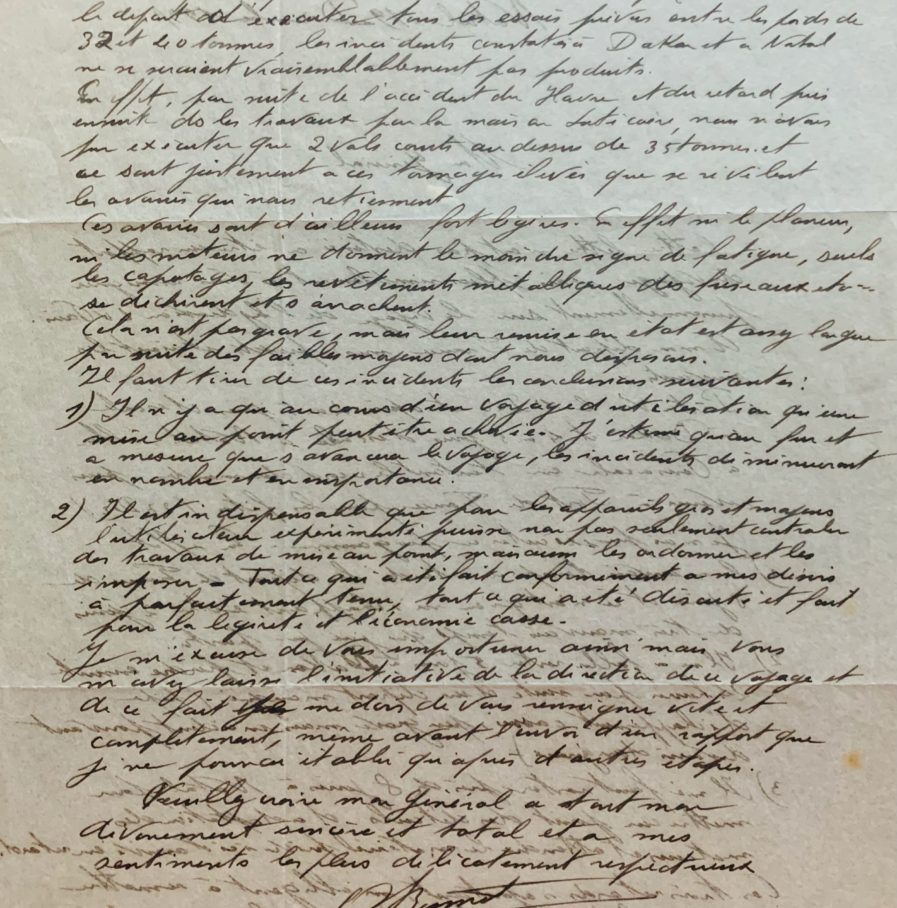 le départ d'exécuter tous les essais prévus entre les poids de
32 et 40 tonnes, les incidents constatés à Dakar et à Natal
ne se seraient vraisemblablement pas produits.
En effet, par suite de l'accident du Havre et du retard pris
ensuite ds les travaux par la mais au Latécoère, nous n'avons
pu exécuter que 2 vols courts au dessus de 35 tonnes. et
ce sont justement a ces tonnages élevés que se révèlent
les avaries qui nous retiennent
Ces avaries sont d'ailleurs fort légères. En effet ni le planeur,
ni les moteurs ne donnent le moindre signe de fatigue, seuls
les capotages, les revêtements métalliques des fuseaux etc
se déchirent et s'arrachent.
Cela n'est pas grave, mais leur remise en état est assez longue
par suite des faibles moyens dont nous disposons.
Il faut tirer de ces incidents les conclusions suivantes :
1) Il n'y a qu'au cours d'un voyage d'utilisation qu'une
mise au point peut être achevée. J'estime qu'au fur et
a mesure que s'avancera le voyage, les incidents diminueront
en nombre et en importance.
2) Il est indispensable que pour les appareils gros et moyens
l'utilisateur expérimenté puisse non pas seulement controler
des travaux de mise au point, mais aussi les ordonner et les
imposer - Tout ce qui a été fait conformément a mes désirs
à parfaitement tenu, tout ce qui a été discuté et fait
pour la légèreté et l'économie casse.
Je m'excuse de vous importuner ainsi mais vous
m'avez laissé l'initiative de la direction de ce voyage et
de ce fait je me dois de vous renseigner vite et
complètement, même avant l'envoi d'un rapport que
je ne pourrai établir qu'après d'autres étapes.
Veuillez croire mon Général a tout mon
dévouement sincère et total et a mes
sentiments les plus délicatement respectueux